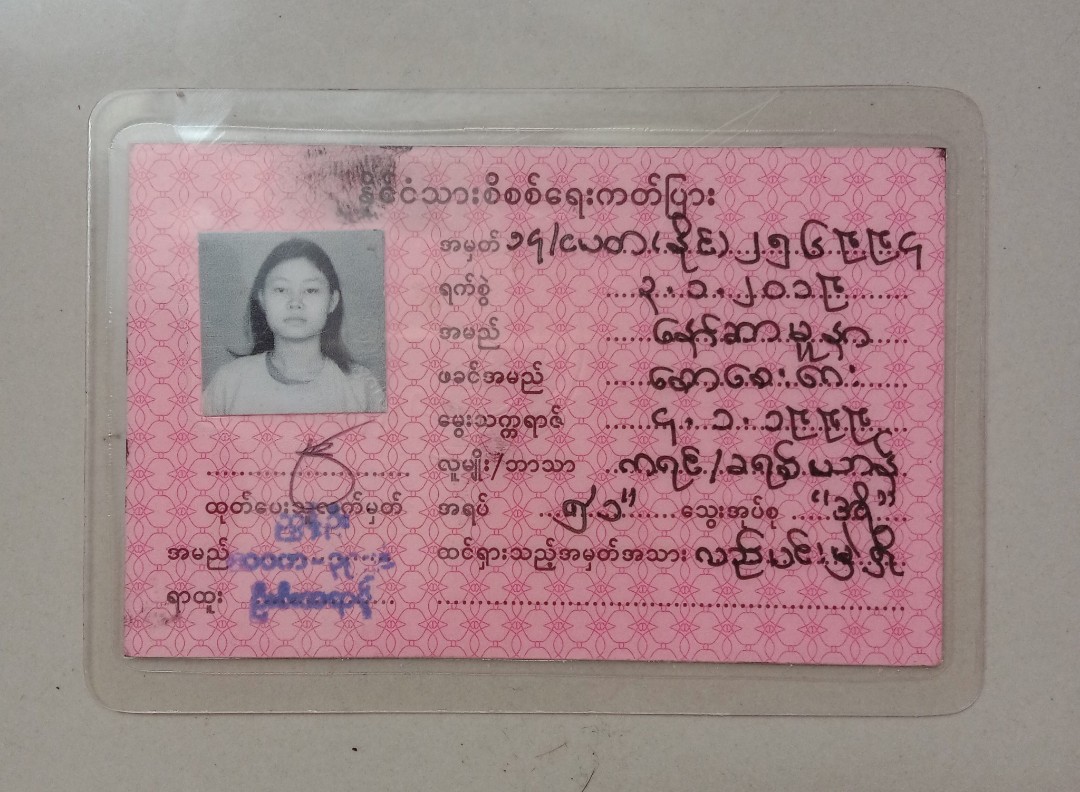 နိုင်ငံသားစိစစ်ရေးကတ်ပြား
အမှတ် ၁၄/ငပတ(နိုင်)၂၅၆၉၉၄
ရက်စွဲ ၃.၁.၂၀၁၉
အမည် နော်ဆာမူနာ
ဖခင်အမည် စောစေးဂေး
မွေးသက္ကရာဇ် ၄.၁.၁၉၉၉
လူမျိုး/ဘာသာ ကရင်/ခရစ်ယာန်
အရပ် ၅'၁" သွေးအုပ်စု "အို"
ထင်ရှားသည့်အမှတ်အသား လည်ပင်းမှဲ့
ထုတ်ပေးသူလက်မှတ်
အမည်
ရာထူး